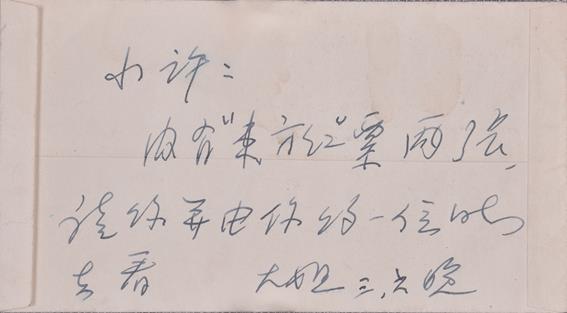 小许：
内有"东方红"票两张，
请你并由你约一位同
去看 大姐 三.六晚